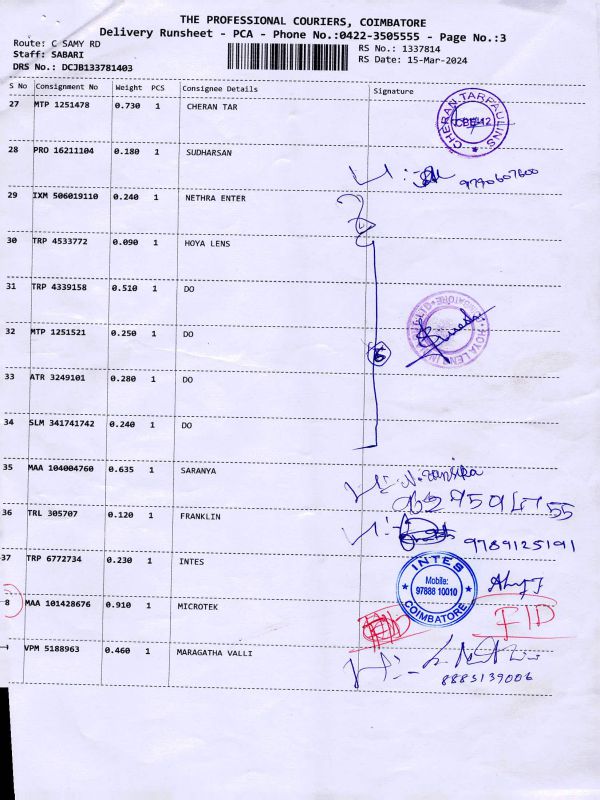 THE PROFESSIONAL COURIERS, COIMBATORE
Delivery Runsheet - PCA - Phone No.:0422-3505555 - Page No.:3
Route: C SAMY RD
RS No.: 1337814
Staff: SABARI
RS Date: 15-Mar-2024
DRS No.: DCJB133781403
S No Consignment No Weight PCS Consignee Details Signature
27 MTP 1251478 0.730 1 CHERAN TAR
CHERAN TARPAULINS CBE-12
28 PRO 16211104 0.180 1 SUDHARSAN
9790607600
29 IXM 506019110 0.240 1 NETHRA ENTER
30 TRP 4533772 0.090 1 HOYA LENS
31 TRP 4339158 0.510 1 DO
HOYA LENS
32 MTP 1251521 0.250 1 DO
5
33 ATR 3249101 0.280 1 DO
34 SLM 341741742 0.240 1 DO
35 MAA 104004760 0.635 1 SARANYA
36 TRL 305707 0.120 1 FRANKLIN
9789125191
37 TRP 6772734 0.230 1 INTES
INTES
Mobile:
97888 10010
COIMBATORE
8 MAA 101428676 0.910 1 MICROTEK
FID
VPM 5188963 0.460 1 MARAGATHA VALLI
8885139006